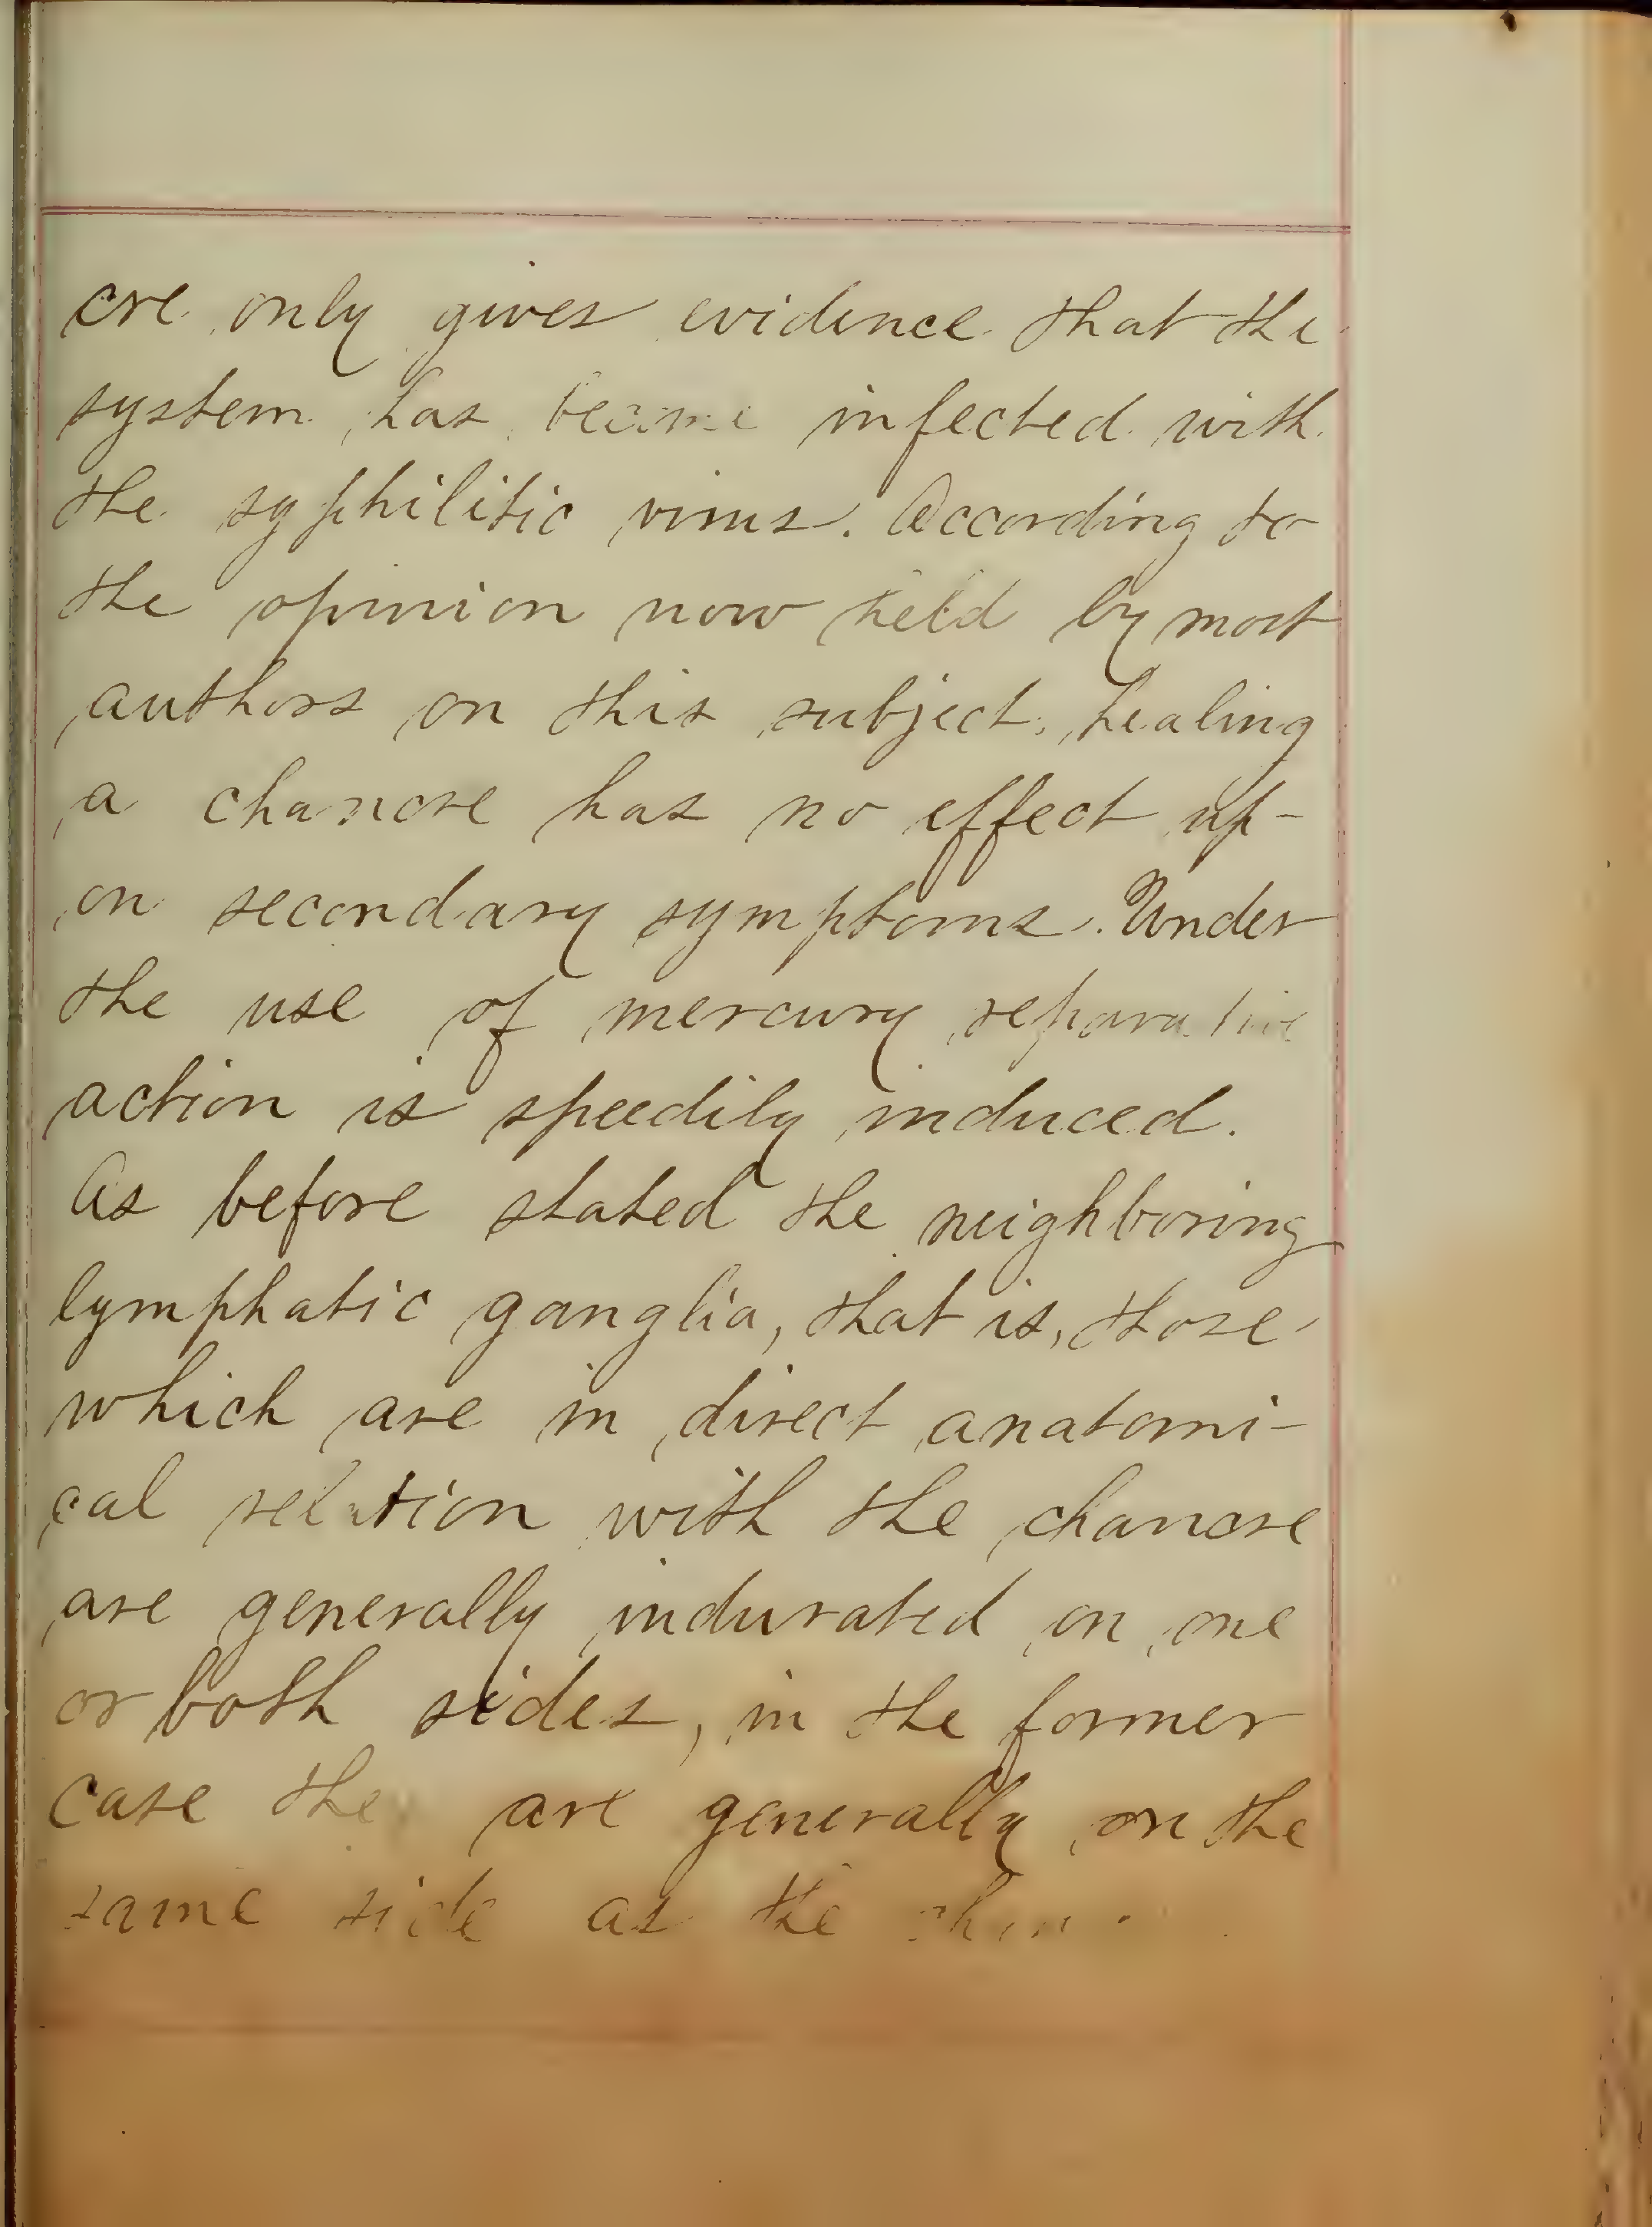 cre only gives evidence that the
system has become infected with
the syphilitic virus. According to
the opinion now held by most
authors on this subject, healing
a chancre has no effect up-
on secondary symptoms. Under
the use of mercury reparative
action is speedily induced.
As before stated the neighboring
lymphatic ganglia, that is, those
which are in direct anatomi-
cal relation with the chancre
are generally indurated on one
or both sides, in the former
case the are generally on the
same side as the